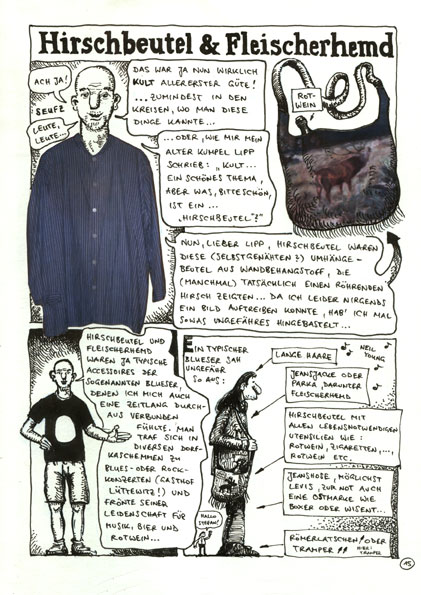 Hirschbeutel & Fleischerhemd
ACH JA!
SEUFZ
LEUTE,
LEUTE...
DAS WAR JA NUN WIRKLICH
KULT ALLERERSTER GÜTE!
...ZUMINDEST IN DEN
KREISEN, WO MAN DIESE
DINGE KANNTE...
...ODER, WIE MIR MEIN
ALTER KUMPEL LIPP
SCHRIEB: „KULT...
EIN SCHÖNES THEMA,
ABER WAS, BITTESCHÖN,
IST EIN...
„HIRSCHBEUTEL"?"
ROT-
WEIN
NUN, LIEBER LIPP, HIRSCHBEUTEL WAREN
DIESE (SELBSTGENÄHTEN?) UMHÄNGE-
BEUTEL AUS WANDBEHANGSTOFF, DIE
(MANCHMAL) TATSÄCHLICH EINEN RÖHRENDEN
HIRSCH ZEIGTEN... DA ICH LEIDER NIRGENDS
EIN BILD AUFTREIBEN KONNTE, HAB' ICH MAL
SOWAS UNGEFÄHRES HINGEBASTELT...
HIRSCHBEUTEL UND
FLEISCHERHEMD
WAREN JA TYPISCHE
ACCESSOIRES DER
SOGENANNTEN BLUESER,
DENEN ICH MICH AUCH
EINE ZEITLANG DURCH-
AUS VERBUNDEN
FÜHLTE. MAN
TRAF SICH IN
DIVERSEN DORF-
KASCHEMMEN ZU
BLUES- ODER ROCK-
KONZERTEN (GASTHOF
LÜTTEWITZ!) UND
FRÖNTE SEINER
LEIDENSCHAFT FÜR
MUSIK, BIER UND
ROTWEIN...
EIN TYPISCHER
BLUESER SAH
UNGEFÄHR
SO AUS:
LANGE HAARE
NEIL
YOUNG
JEANSJACKE ODER
PARKA, DARUNTER
FLEISCHERHEMD
HIRSCHBEUTEL MIT
ALLEN LEBENSNOTWENDIGEN
UTENSILIEN WIE:
ROTWEIN, ZIGARETTEN,...,
ROTWEIN ETC.
JEANSHOSE, MÖGLICHST
LEVIS, ZUR NOT AUCH
EINE OSTMARKE WIE
BOXER ODER WISENT...
RÖMERLATSCHEN! ODER
TRAMPER !!
HIER:
TRAMPER
HALLO
STEFAN!
15